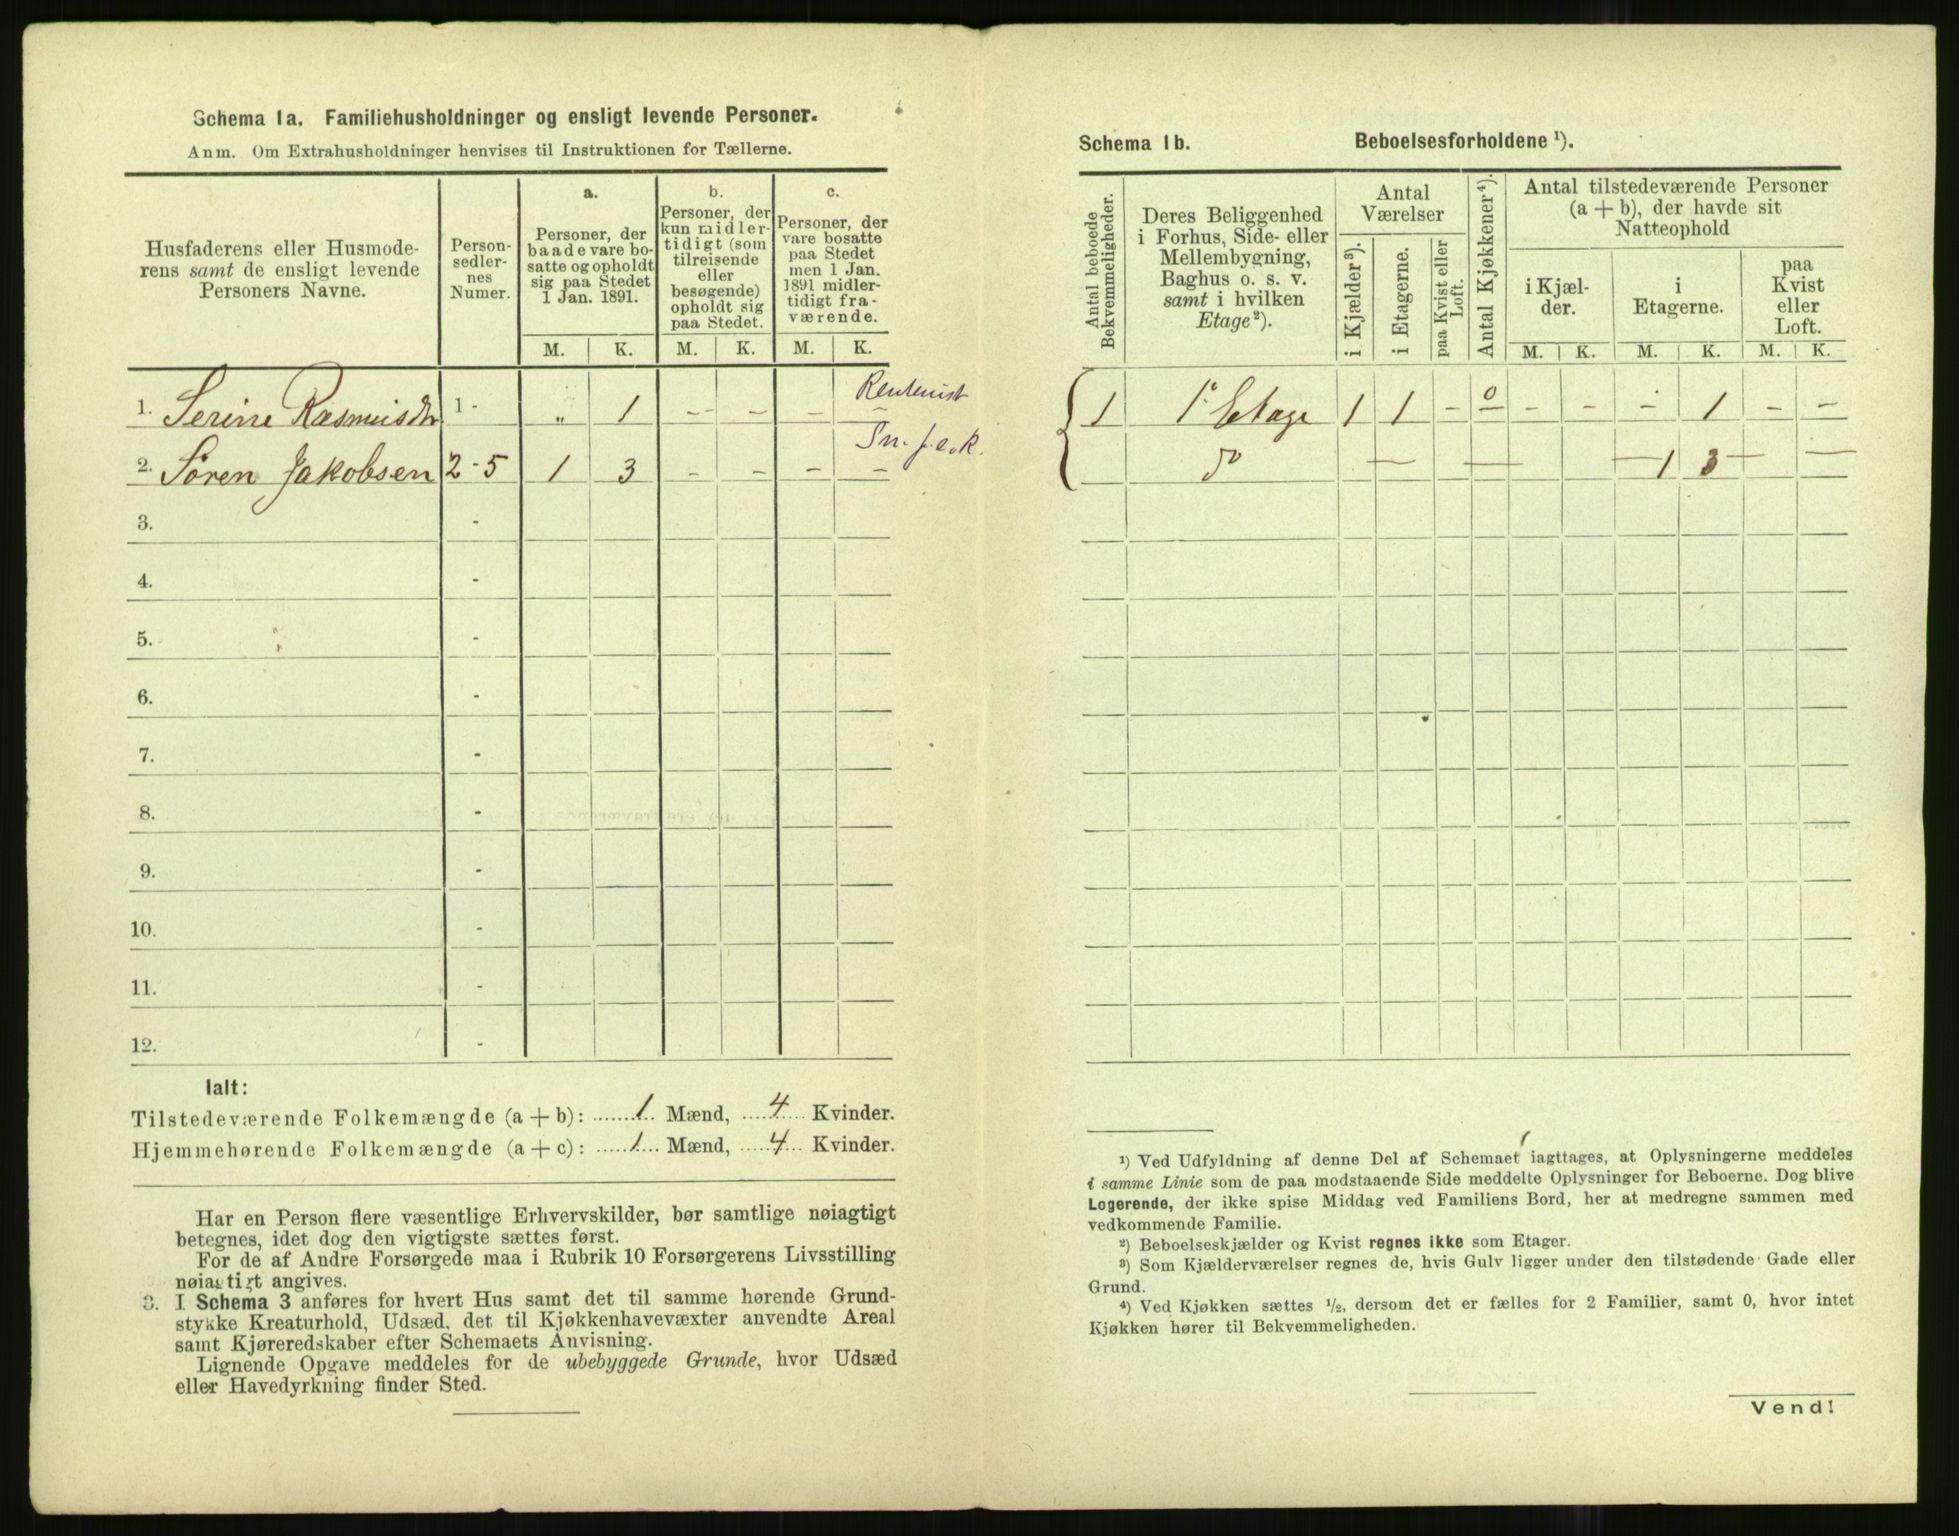 Schema 1a. Familiehusholdninger og ensligt levende Personer.
Anm. Om Extrahusholdninger henvises til Instruktionen for Tællerne.
Husfaderens eller Husmode-
rens samt de ensligt levende
Personers Navne.
Person-
sedler-
nes
Numer.
a.
Personer, der
baade vare bo-
satte og opholdt
sig paa Stedet
1 Jan. 1891.
b.
Personer, der
kun midler-
tidigt (som
tilreisende
eller
besøgende)
opholdt sig
paa Stedet.
c.
Personer, der
vare bosatte
paa Stedet
men 1 Jan.
1891 midler-
tidigt fra-
værende.
M. K. M. K. M. K.
Rentenist
1. Serine Rasmusdtr 1 - „ 1 - - - -
2. Søren Jakobsen 2 - 5 1 3 - - - -
3. -
4. -
5. -
6. -
7. -
8. -
9. -
10. -
11. -
12. -
Ialt:
Tilstedeværende Folkemængde (a + b): 1 Mænd, 4 Kvinder.
Hjemmehørende Folkemængde (a + c): 1 Mænd, 4 Kvinder.
Har en Person flere væsentlige Erhvervskilder, bør samtlige nøiagtigt
betegnes, idet dog den vigtigste sættes først.
For de af Andre Forsørgede maa i Rubrik 10 Forsørgerens Livsstilling
nøiagtigt angives.
3. I Schema 3 anføres for hvert Hus samt det til samme hørende Grund-
stykke Kreaturhold, Udsæd, det til Kjøkkenhavevæxter anvendte Areal
samt Kjøreredskaber efter Schemaets Anvisning.
Lignende Opgave meddeles for de ubebyggede Grunde, hvor Udsæd
eller Havedyrkning finder Sted.
Schema 1b. Beboelsesforholdene ¹).
Antal beboede
Bekvemmeligheder.
Deres Beliggenhed
i Forhus, Side- eller
Mellembygning,
Baghus o. s. v.
samt i hvilken
Etage²).
Antal
Værelser
i Kjælder³).
i Etagerne.
paa Kvist eller
Loft.
Antal Kjøkkener⁴).
Antal tilstedeværende Personer
(a + b), der havde sit
Natteophold
i Kjæl-
der.
i
Etagerne.
paa
Kvist
eller
Loft.
M. K. M. K. M. K.
1 1. Etage 1 1 - 0 - - - 1 - -
do - - - 1 3 - -
¹) Ved Udfyldning af denne Del af Schemaet iagttages, at Oplysningerne meddeles
i samme Linie som de paa modstaaende Side meddelte Oplysninger for Beboerne. Dog blive
Logerende, der ikke spise Middag ved Familiens Bord, her at medregne sammen med
vedkommende Familie.
²) Beboelseskjælder og Kvist regnes ikke som Etager.
³) Som Kjælderværelser regnes de, hvis Gulv ligger under den tilstødende Gade eller
Grund.
⁴) Ved Kjøkken sættes ½, dersom det er fælles for 2 Familier, samt 0, hvor intet
Kjøkken hører til Bekvemmeligheden.
Vend!